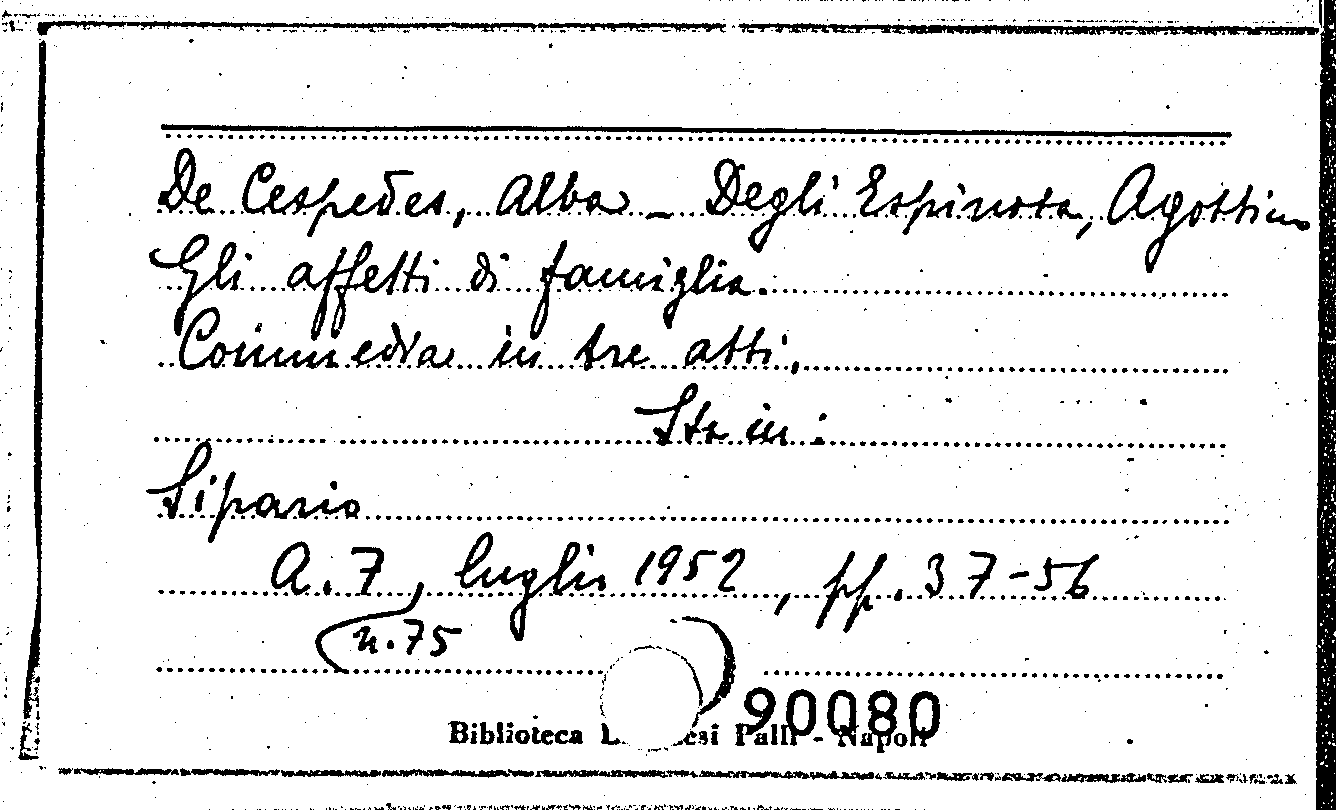 De Cespedes, Alba - Degli Espinosa, Agostino
Gli affetti di famiglia.
Commedia in tre atti.
Sta in:
Sipario
A. 7, luglio 1952, pp. 37-56
n. 75
90080
Biblioteca Palli - Napoli